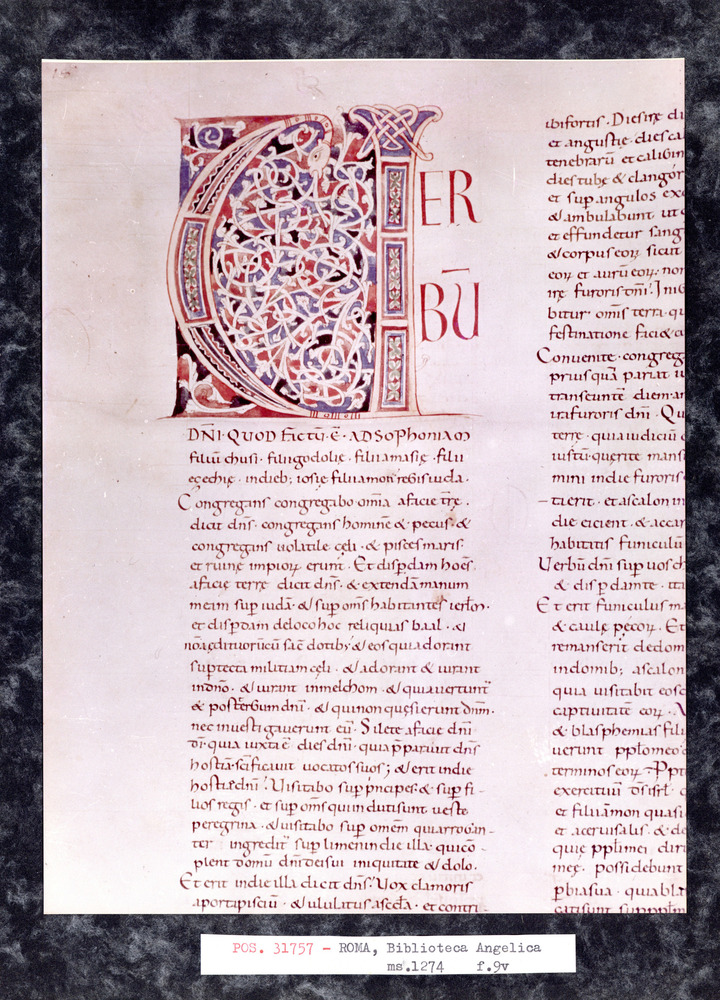 V
ER
BŪ
DÑI · QUOD FACTŪ · Ē · AD SOPHONIAM
filiū chusi · filii godolie · filii amasie · filii
ezechie · in dieb; iosie filii amon regis iuda ·
Congregans congregabo omnia a facie trę ·
dicit dñs · congregans hominē & pecus · &
congregans uolatile cęli · & pisces maris ·
et ruinę impiorū erunt · Et dispdam hoēs ·
a facie terrę dicit dñs · & extendā manum
meam sup iudā · & sup oms habitantes ierlm ·
et dispdam de loco hoc reliquias baal · &
nomina ędituorū cū sacdotib; & eos qui adorant
sup tecta militiam cęli · & adorant & iurant
in dño · & iurant in melchom · & qui auertunt
& post tergum dñi · & qui non quęsierunt dñm ·
nec inuestigauerunt eū · Silete a facie dñi
dī · quia iuxta ē dies dñi · quia pparauit dñs
hostiā · scificauit uocatos suos ; & erit in die
hostię dñi · Uisitabo sup pncipes & sup fi-
lios regis · et sup oms qui induti sunt ueste
peregrina · & uisitabo sup omem qui arrogan-
ter ingredit sup limen in die illa · qui cō-
plent domū dñi dei sui iniquitate & dolo ·
Et erit in die illa dicit dñs · Uox clamoris
a porta pisciū · & ululatus a scda · et contri-
ibi fortis · Dies irę di
et angustię · dies ca
tenebrarū et caligin
dies tubę & clangor
et sup angulos exc
& ambulabunt ut c
et effundetur sang
& corpus eoꝝ sicut
eoꝝ et aurū eoꝝ · non
irę furoris dñi · In ig
bitur omīs terra · qu
festinatione faci& c
Conuenite · congreg
priusquā pariat iu
transeuntē diem · an
ira furoris dñi · Qu
terrę · qui a iudiciū
iustū · querite mans
mini in die furoris
erit · et ascalon in
die eicient · & accar
habitatis funiculū
Uerbū dñi sup uos ch
& dispdam te · ita
Et erit funiculus m
& caulę pecoꝝ · Et
remanserit de dom
in domib; ascalon
quia uisitabit eos d
captiuitatē eoꝝ · A
& blasphemias fili
uerunt pplo meo &
terminos eoꝝ · Ppt
exercituū ds isrl ·
et filii amon quasi
et acerui salis · & de
quię ppli mei diri
meę · possidebunt
pbia sua · quia bla
cati sunt sup pplm
POS. 31757 - ROMA, Biblioteca Angelica
ms.1274 f.9v